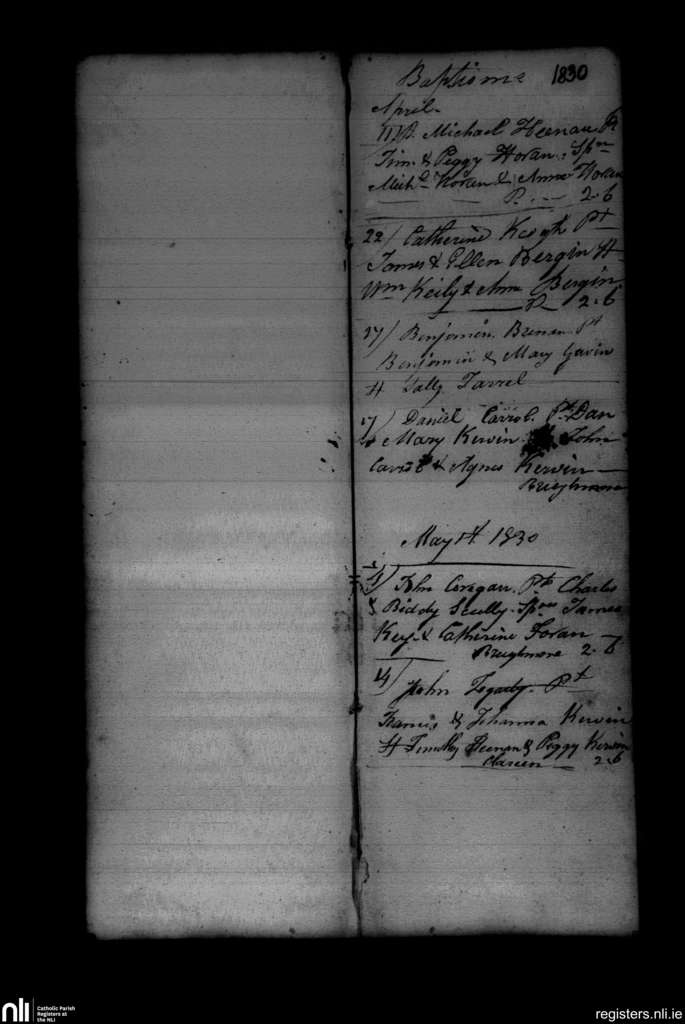 Baptisms 1830
April.
Michael Heenan Pt
Tim & Peggy Horan. Spn
Michl Horan & Anne Horan
P. — 2.6
22/ Catherine Keogh Pt
James & Ellen Bergin H
Wm Keily & Ann Bergin
P 2.6
27/ Benjamin Brenan Pt
Benjamin & Mary Gavin
H Sally Farrel
17/ Daniel Carrol. Pt Dan
& Mary Kerwin John
Carrol & Agnes Kerwin —
May 1830
John Coregan. Pts Charles
& Biddy Scully. Spns James
Key & Catherine Foran —
2.6
14/
John Fogarty. Pt
Francis & Johanna Kerwin
H Timothy Heenan & Peggy Kerwin
Clareen — 2.6
nli
Catholic Parish
Registers at
the NLI
registers.nli.ie